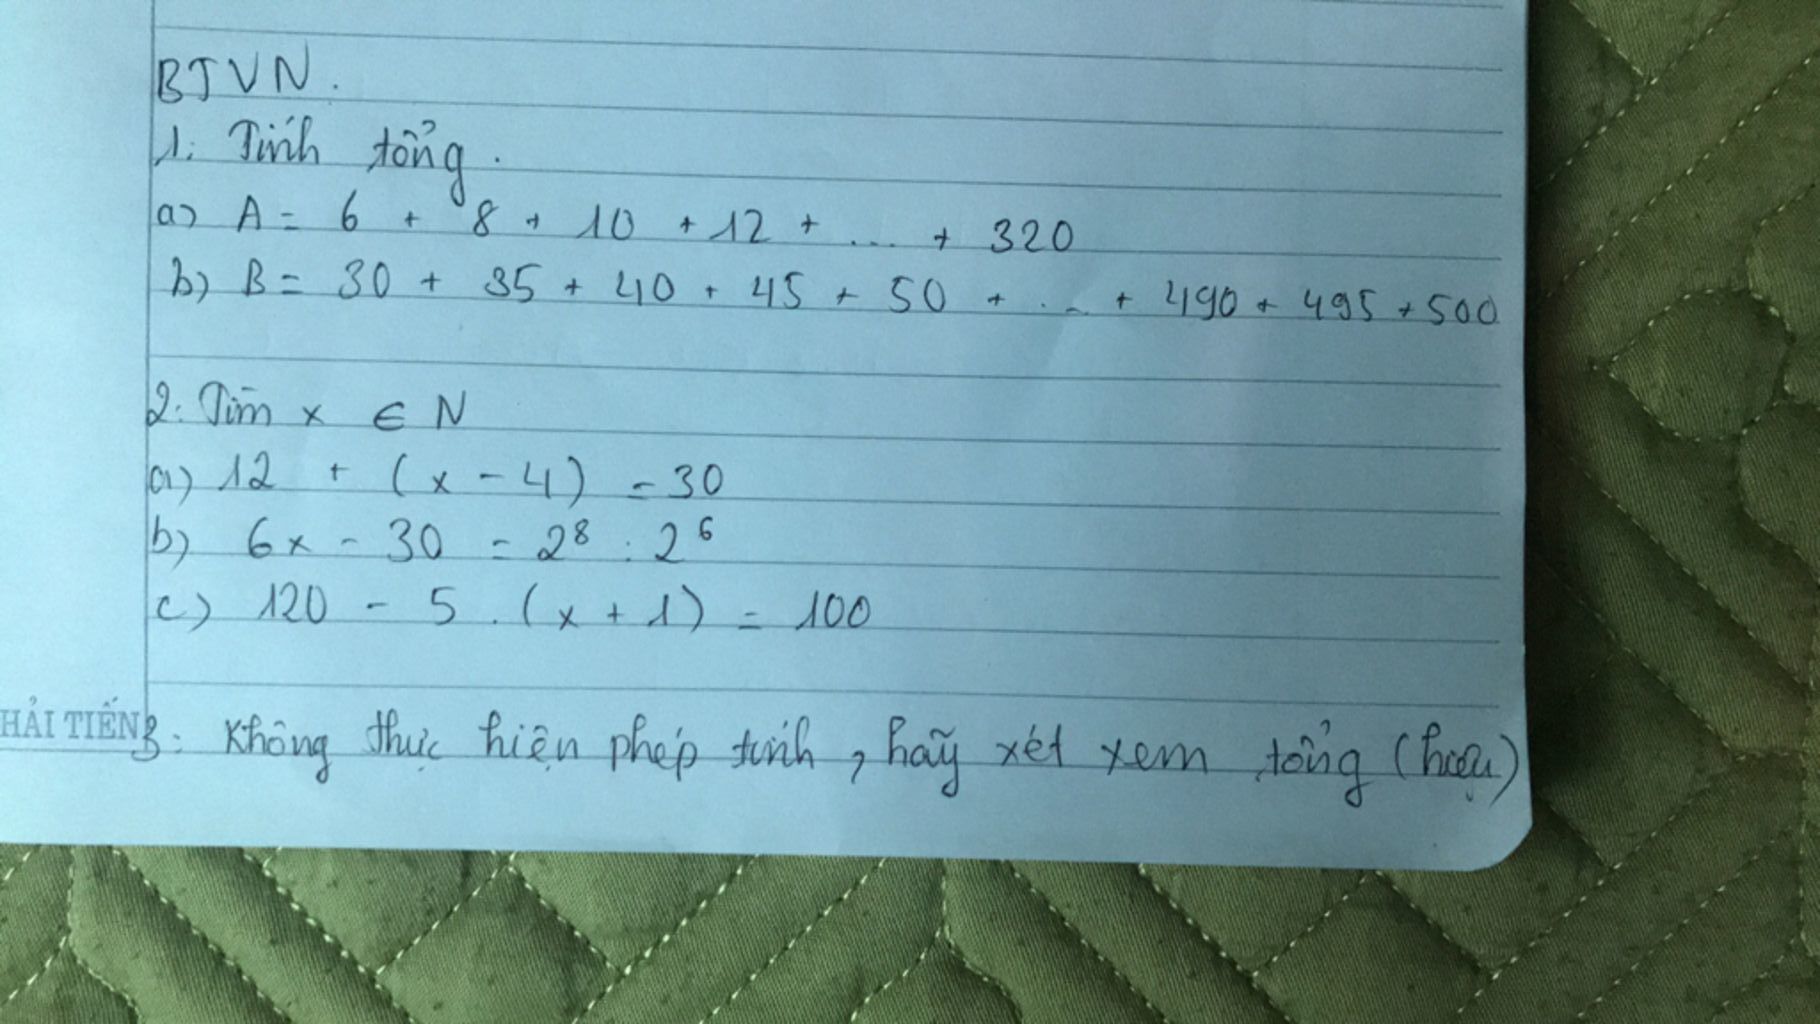 BTVN.
1. Tính tổng.
a) A = 6 + 8 + 10 + 12 + ... + 320
b) B = 30 + 35 + 40 + 45 + 50 + ... + 490 + 495 + 500
2. Tìm x ∈ N
a) 12 + (x - 4) = 30
b) 6x - 30 = 2⁸ : 2⁶
c) 120 - 5 . (x + 1) = 100
HẢI TIẾN 3. Không thực hiện phép tính, hãy xét xem tổng (hiệu)